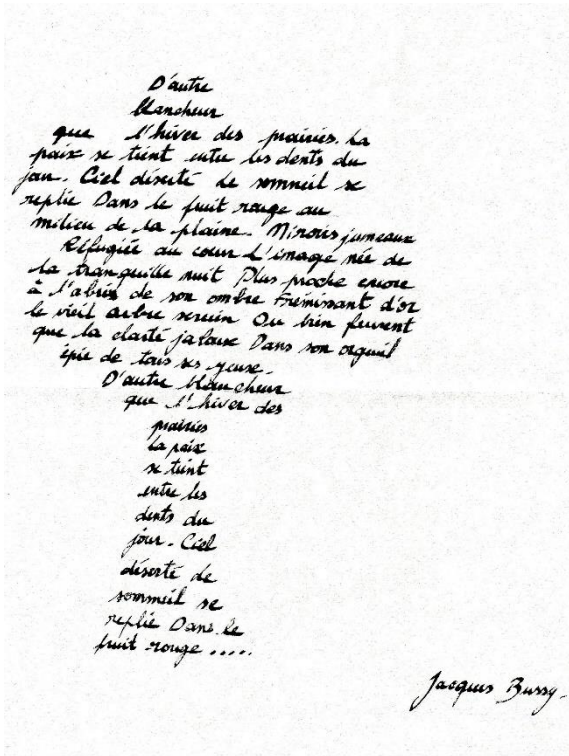 D'autre
blancheur
que l'hiver des prairies. La
paix se tient entre les dents du
jour. Ciel déserté Le sommeil se
replie Dans le fruit rouge au
milieu de la plaine. Miroirs jumeaux
Réfugiée au cœur L'image née de
la tranquille nuit Plus proche encore
à l'abri de son ombre Frémissant d'or
le vieil arbre serein Ou bien fervent
que la clarté jalouse Dans son orgueil
épie de tous ses yeux.
D'autre blancheur
que l'hiver des
prairies
La paix
se tient
entre les
dents du
jour. Ciel
déserté de
sommeil se
replie Dans le
fruit rouge .....
Jacques Bussy.